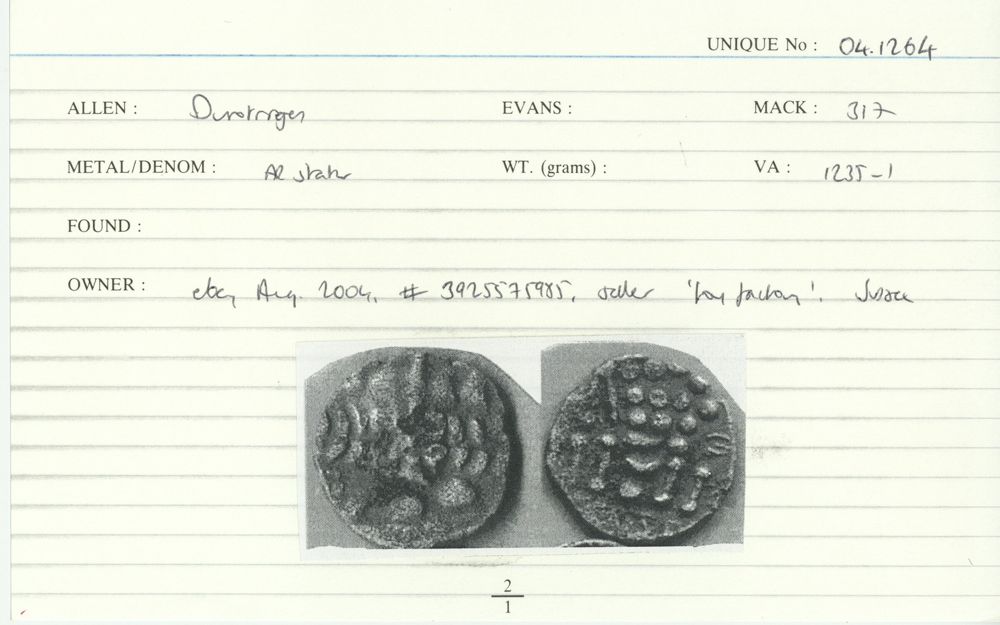 UNIQUE No : 04.1264
ALLEN : Durotriges EVANS : MACK : 317
METAL/DENOM : AR stater WT. (grams) : VA : 1235-1
FOUND :
OWNER : ebay Aug 2004, # 3925575985, seller 'toy factory'. Sussex
2
1